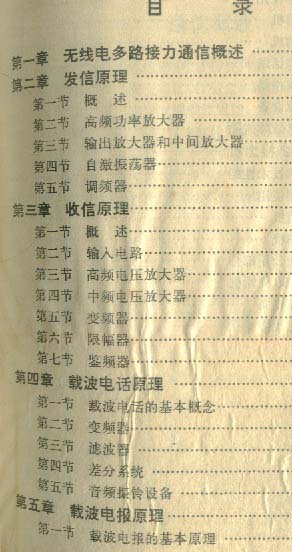 目 录
第一章 无线电多路接力通信概述
第二章 发信原理
第一节 概 述
第二节 高频功率放大器
第三节 输出放大器和中间放大器
第四节 自激振荡器
第五节 调频器
第三章 收信原理
第一节 概 述
第二节 输入电路
第三节 高频电压放大器
第四节 中频电压放大器
第五节 变频器
第六节 限幅器
第七节 鉴频器
第四章 载波电话原理
第一节 载波电话的基本概念
第二节 变频器
第三节 滤波器
第四节 差分系统
第五节 音频振铃设备
第五章 载波电报原理
第一节 载波电报的基本原理